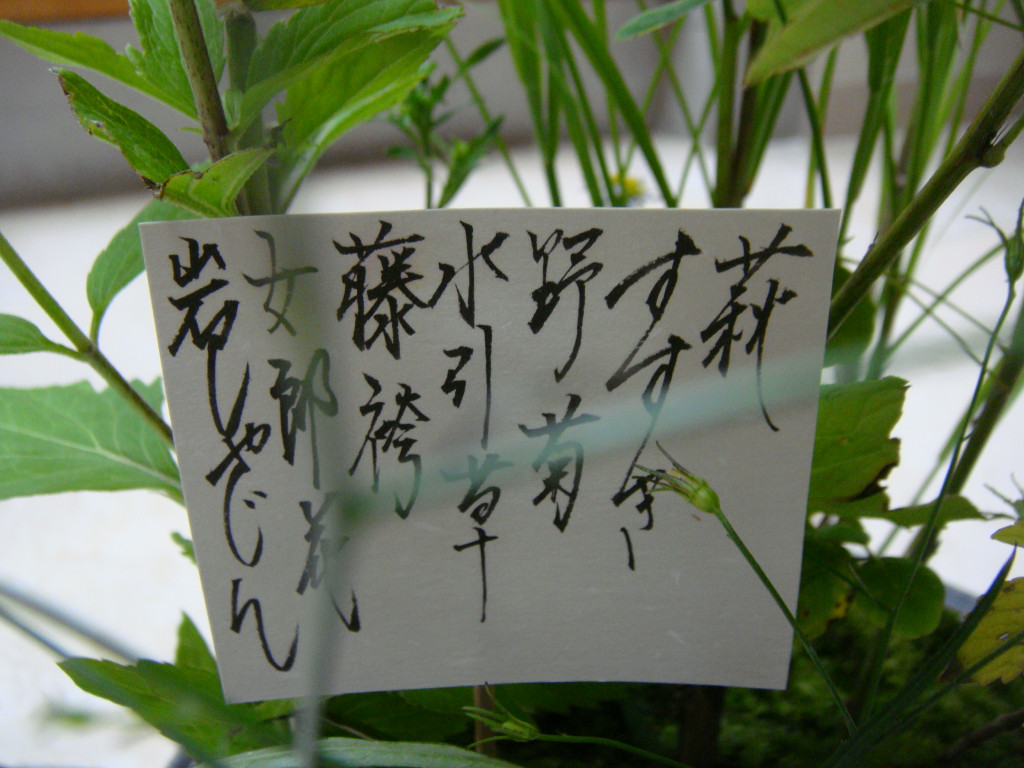 萩
すすき
野菊
水引草
藤袴
女郎花
岩しゃじん